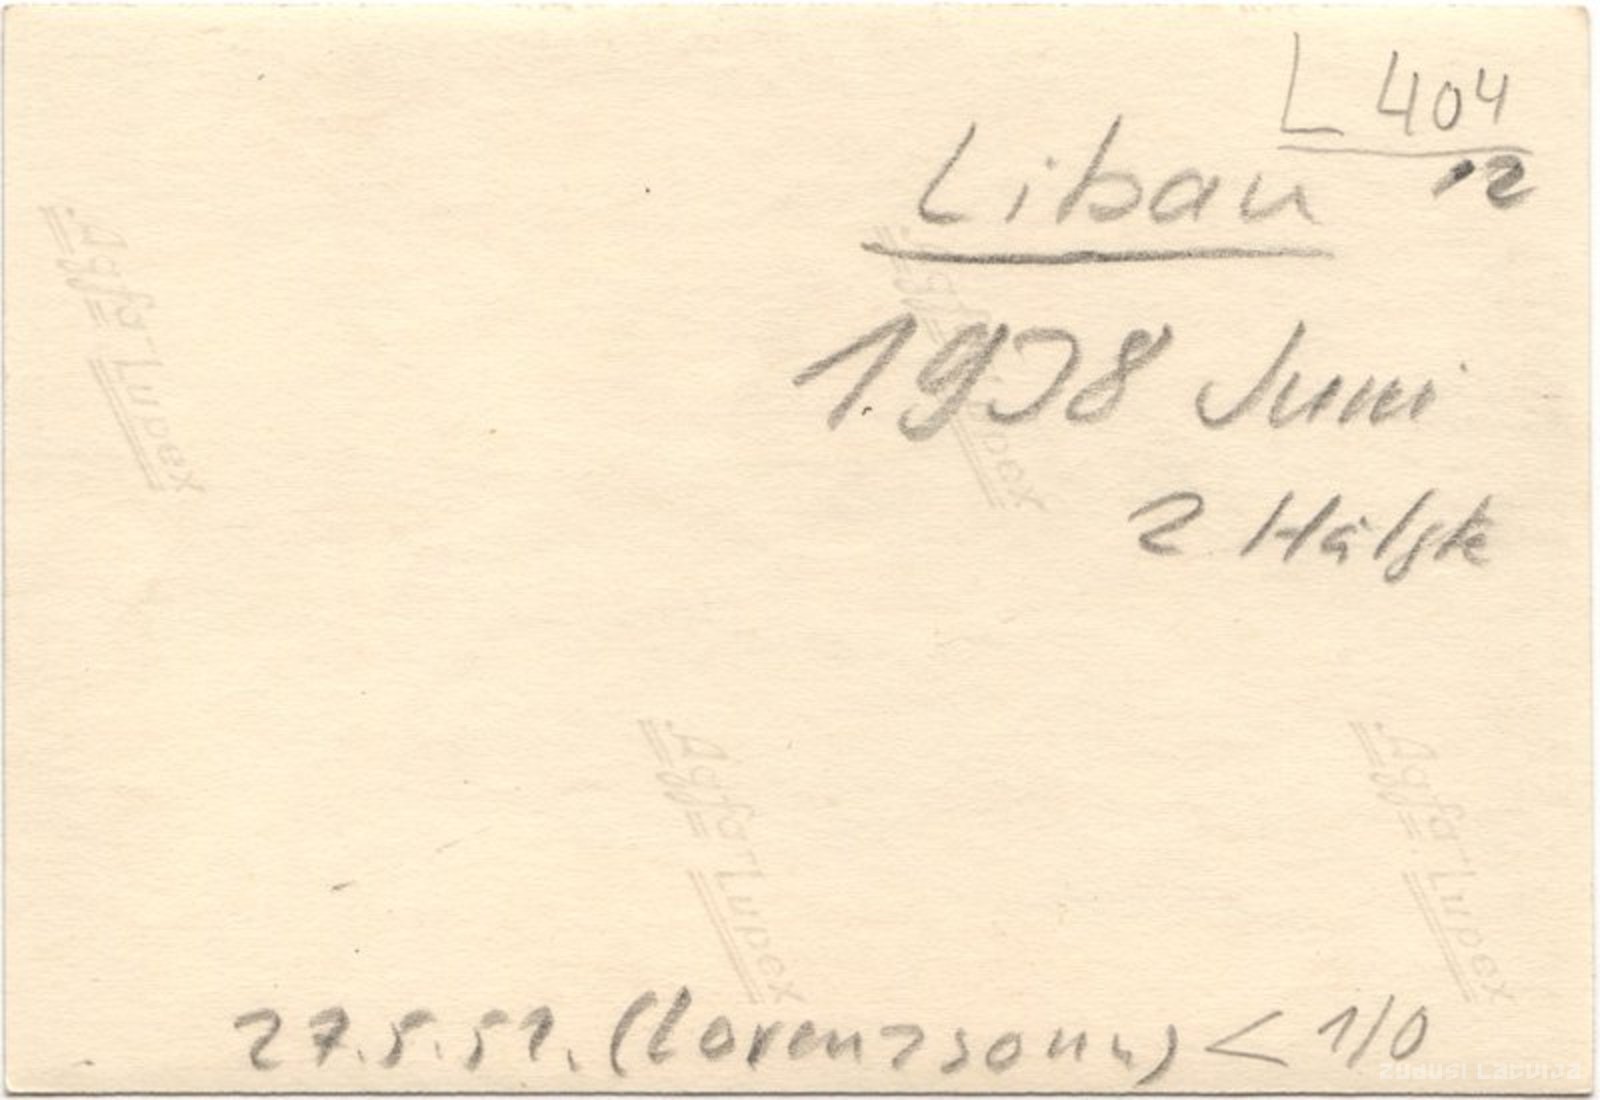 L 404
12
Libau
1938 Juni
2 Hälfte
Agfa-Lupex
Agfa-Lupex
Agfa-Lupex
Agfa-Lupex
27.5.51. (Lorenzsonn) < 1/0
Zudusi Latvija